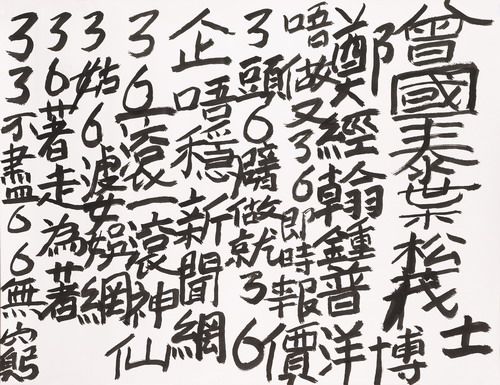 曾國泰葉松茂博士
鄭經翰鍾普洋
唔做又36即時報價
3頭6臂做就36
企唔穩新聞網
36一滾一滾神仙
3姑6婆娛網
36著走為著
33不盡66無窮